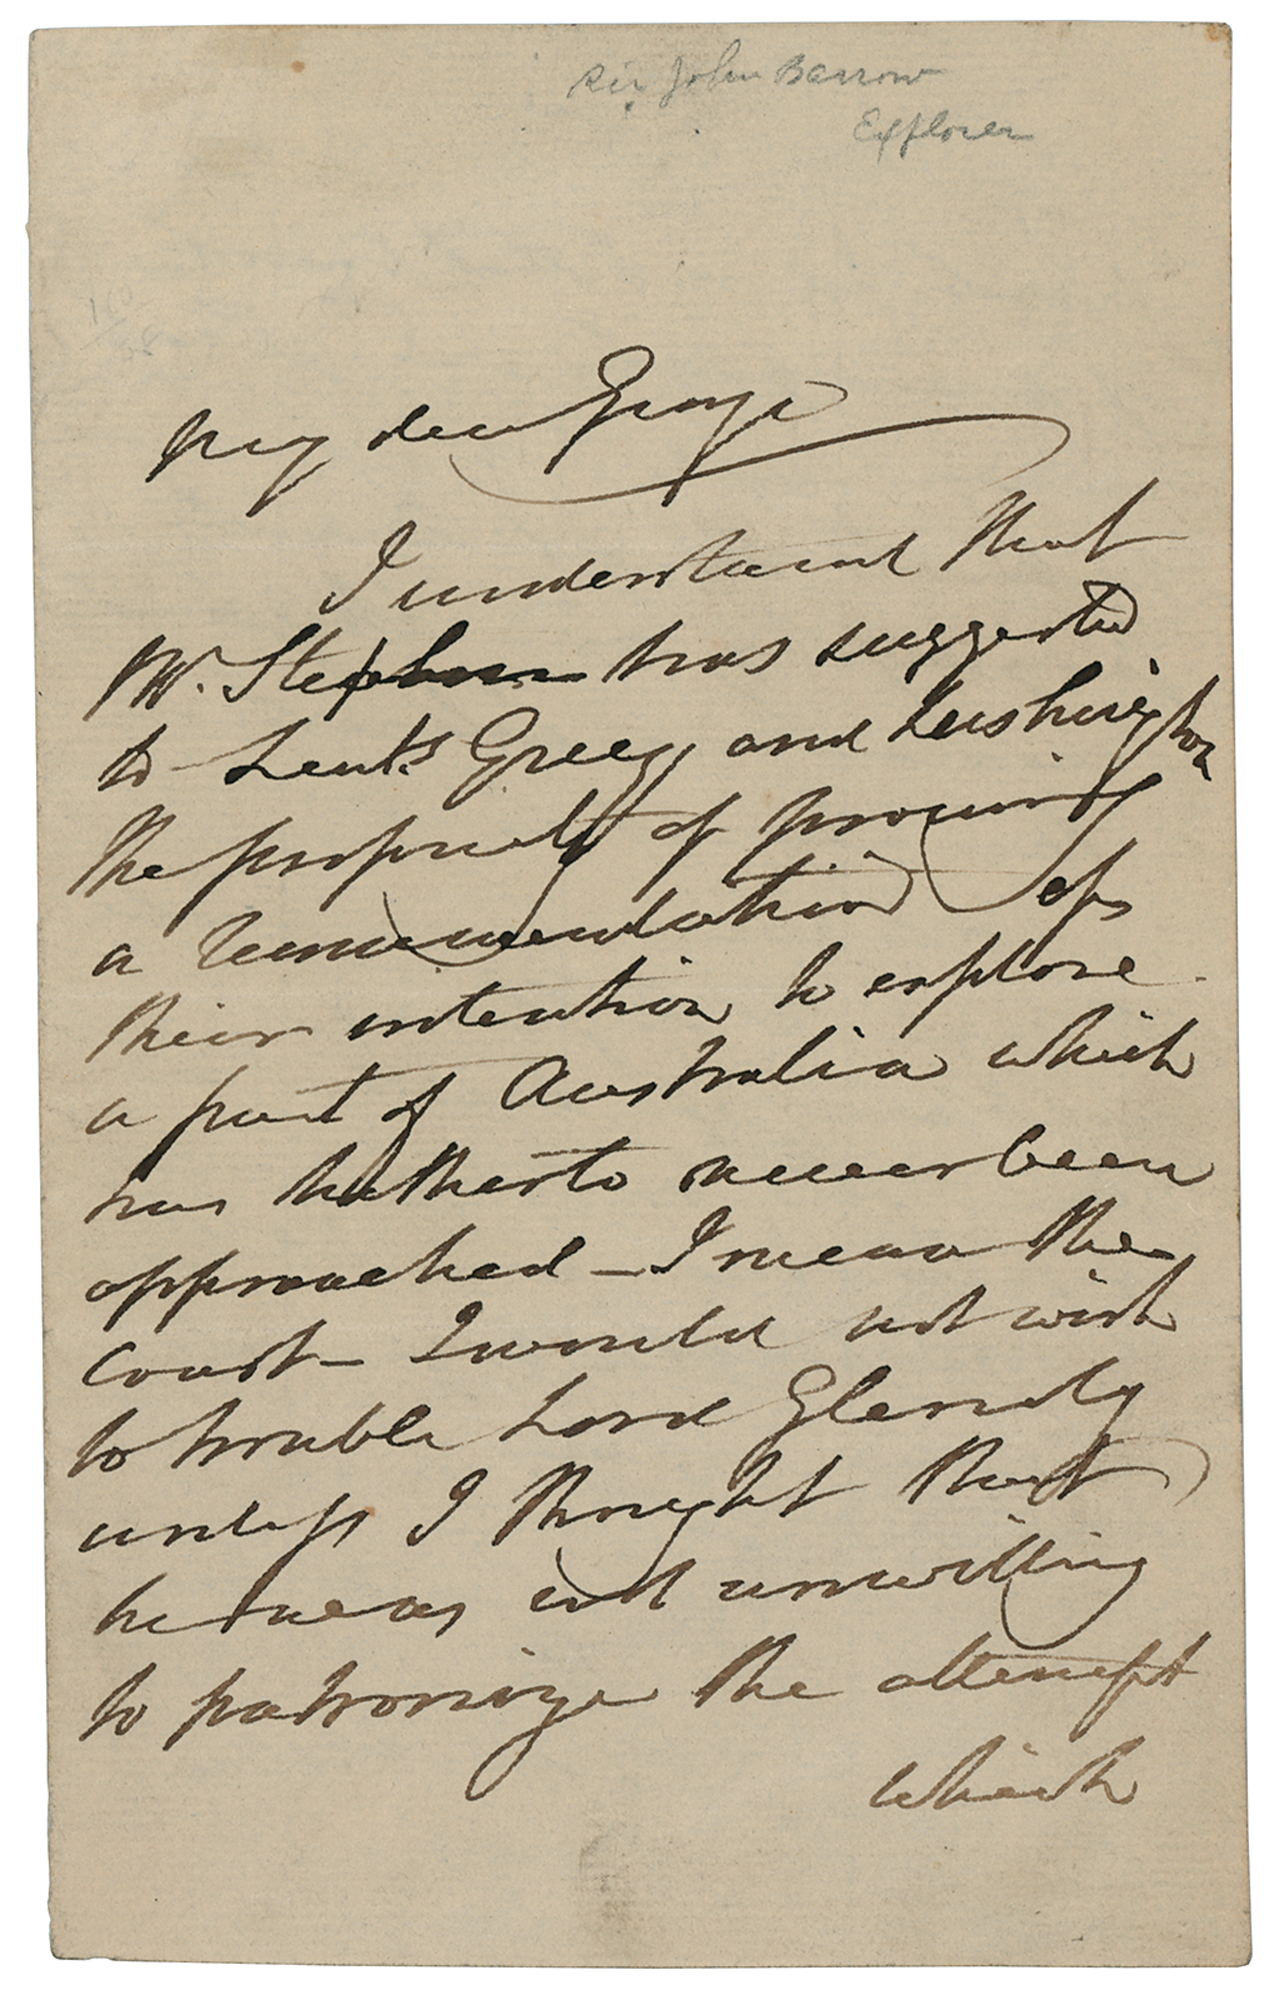 Sir John Barrow
Explorer
My dear George
I understand that
Mr. Stephen has suggested
to Leuts Grey, and Lushington
the propriety of
a recommendation of
their intention to explore
a part of Australia which
has hitherto never been
approached – I mean the
coast – I would not wish
to trouble Lord Glenelg
unless I thought that
he was not unwilling
to patronize the attempt
which